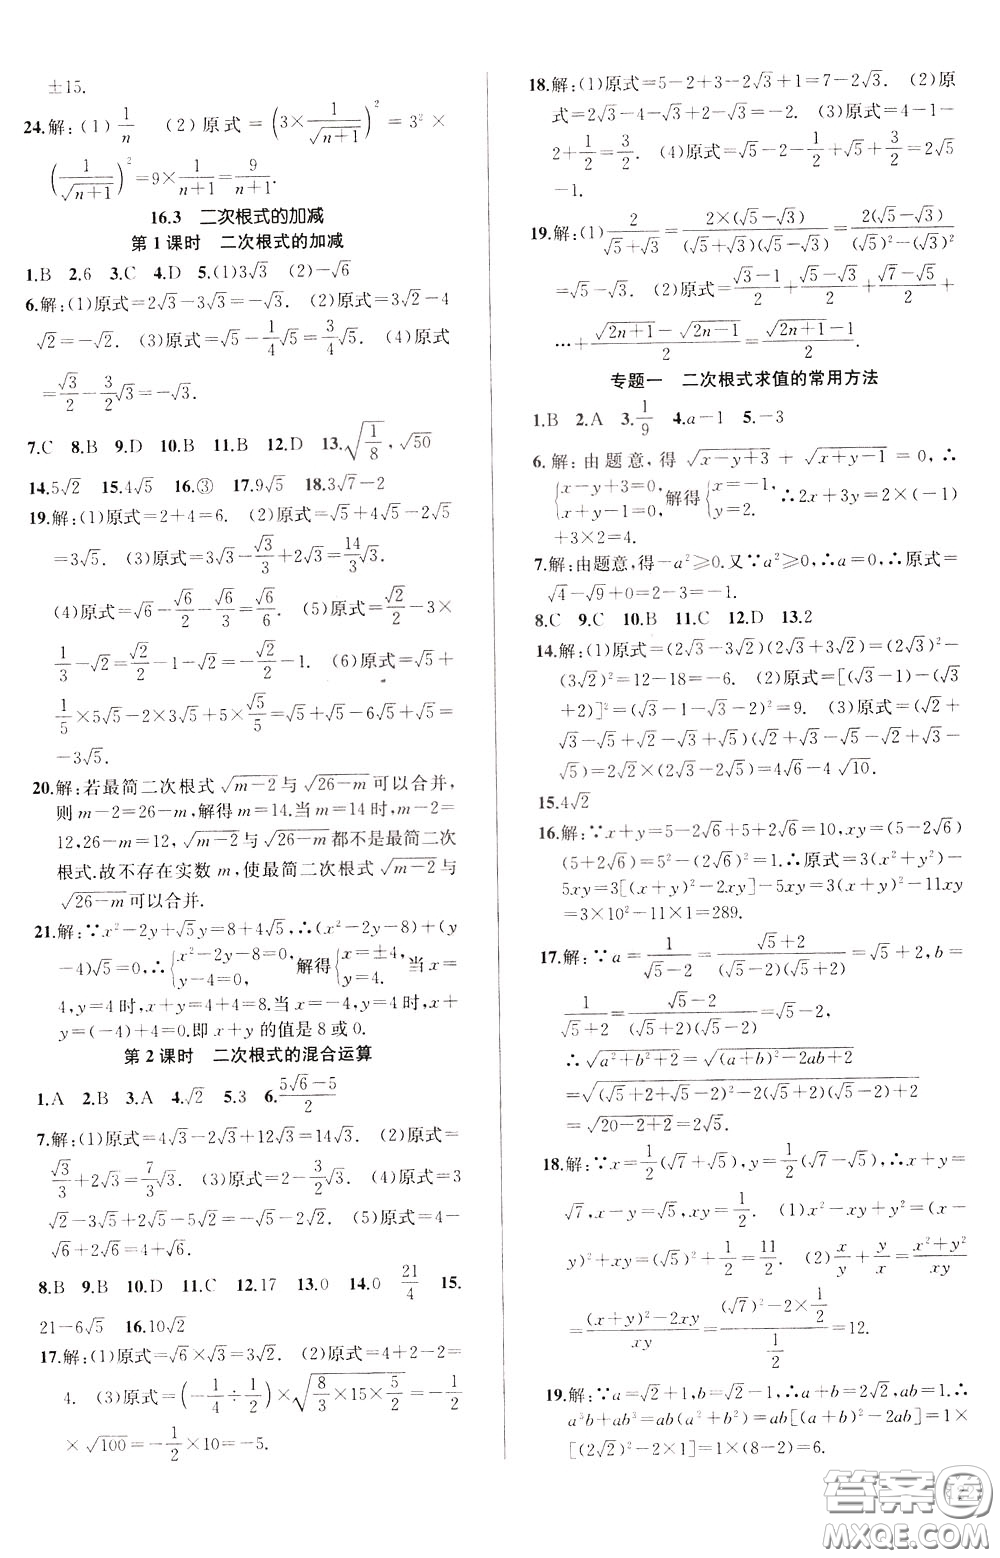 ±15.
24.解:(1) 1/n (2)原式=(3×1/√(n+1))²=3²×
(1/√(n+1))²=9×1/(n+1)=9/(n+1).
16.3 二次根式的加减
第1课时 二次根式的加减
1.B 2.6 3.C 4.D 5.(1)3√3 (2)-√6
6.解:(1)原式=2√3-3√3=-√3. (2)原式=3√2-4
√2=-√2. (3)原式=√5-1/4√5=3/4√5. (4)原式
=√3/2-3/2√3=-√3.
7.C 8.B 9.D 10.B 11.B 12.D 13.√(1/8),√50
14.5√2 15.4√5 16.③ 17.9√5 18.3√7-2
19.解:(1)原式=2+4=6. (2)原式=√5+4√5-2√5
=3√5. (3)原式=3√3-√3/3+2√3=14/3√3.
(4)原式=√6-√6/6-√6/3=√6/6. (5)原式=√2/2-3×
1/3-√2=√2/2-1-√2=-√2/2-1. (6)原式=√5+
1/5×5√5-2×3√5+5×√5/5=√5+√5-6√5+√5=
-3√5.
20.解:若最简二次根式√(m-2)与√(26-m)可以合并,
则m-2=26-m,解得m=14.当m=14时,m-2=
12,26-m=12,√(m-2)与√(26-m)都不是最简二次
根式.故不存在实数m,使最简二次根式√(m-2)与
√(26-m)可以合并.
21.解:∵x²-2y+√5y=8+4√5,∴(x²-2y-8)+(y
-4)√5=0,∴{x²-2y-8=0, y-4=0, 解得{x=±4, y=4. 当x=
4,y=4时,x+y=4+4=8.当x=-4,y=4时,x+
y=(-4)+4=0.即x+y的值是8或0.
第2课时 二次根式的混合运算
1.A 2.B 3.A 4.√2 5.3 6.(5√6-5)/2
7.解:(1)原式=4√3-2√3+12√3=14√3. (2)原式=
√3/3+2√3=7/3√3. (3)原式=√2-3√2=-2√2. (4)原式=3
√2-3√5+2√5-5√2=-√5-2√2. (5)原式=4-
√6+2√6=4+√6.
8.B 9.B 10.D 11.C 12.17 13.0 14.0 21/4 15.
21-6√5 16.10√2
17.解:(1)原式=√6×√3=3√2. (2)原式=4+2-2=
4. (3)原式=(-1/4÷1/2)×√(8/3×15×5/2)=-1/2
×√100=-1/2×10=-5.
18.解:(1)原式=5-2+3-2√3+1=7-2√3. (2)原
式=2√3-4-4√3+2+2√3=-2. (3)原式=4-1-
2+1/2=3/2. (4)原式=√5-1/2+√5+3/2=2√5
-1.
19.解:(1) 2/(√5+√3)=2×(√5-√3)/((√5+√3)(√5-√3))=2(√5-√3)/((√5)²-(√3)²)
=√5-√3. (2)原式=(√3-1)/2+(√5-√3)/2+(√7-√5)/2+
…+(√(2n+1)-√(2n-1))/2=(√(2n+1)-1)/2.
专题一 二次根式求值的常用方法
1.B 2.A 3.1/9 4.a-1 5.-3
6.解:由题意,得√(x-y+3)+√(x+y-1)=0,∴
{x-y+3=0, x+y-1=0, 解得{x=-1, y=2. ∴2x+3y=2×(-1)
+3×2=4.
7.解:由题意,得-a²≥0.又∵a²≥0,∴a=0,∴原式=
√4-√9+0=2-3=-1.
8.C 9.C 10.B 11.C 12.D 13.2
14.解:(1)原式=(2√3-3√2)(2√3+3√2)=(2√3)²-
(3√2)²=12-18=-6. (2)原式=[(√3-1)-(√3
+2)]²=(√3-1-√3-2)²=9. (3)原式=(√2+
√3-√5+√2-√3+√5)(√2+√3-√5-√2+√3-
√5)=2√2×(2√3-2√5)=4√6-4√10.
15.4√2
16.解:∵x+y=5-2√6+5+2√6=10,xy=(5-2√6)
(5+2√6)=5²-(2√6)²=1.∴原式=3(x²+y²)-
5xy=3[(x+y)²-2xy]-5xy=3(x+y)²-11xy
=3×10²-11×1=289.
17.解:∵a=1/(√5-2)=(√5+2)/((√5-2)(√5+2))=√5+2,b=
1/(√5+2)=(√5-2)/((√5+2)(√5-2))=√5-2,
∴√(a²+b²+2)=√((a+b)²-2ab+2)
=√((√5+2+√5-2)²-2(√5+2)(√5-2)+2)
=√(20-2+2)=2√5.
18.解:∵x=1/2(√7+√5),y=1/2(√7-√5),∴x+y=
√7,x-y=√5,xy=1/2. (1)x²-xy+y²=(x-
y)²+xy=(√5)²+1/2=11/2. (2)x/y+y/x=(x²+y²)/xy
=((x+y)²-2xy)/xy=((√7)²-2×1/2)/(1/2)=12.
19.解:∵a=√2+1,b=√2-1,∴a+b=2√2,ab=1.∴
a³b+ab³=ab(a²+b²)=ab[(a+b)²-2ab]=1×
[(2√2)²-2×1]=1×(8-2)=6.
答案卷
MXQE.COM